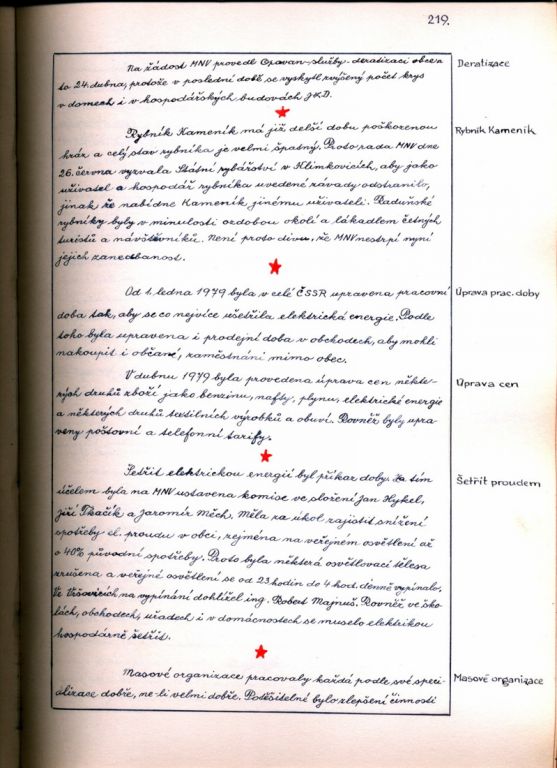 219.
Na žádost MNV provedl Opavan-služby-deratizaci obce a
to 24. dubna, protože v poslední době se vyskytl zvýšený počet krys
v domech i v hospodářských budovách JZD.
Deratizace
Rybník Kameník má již delší dobu poškozenou
hráz a celý stav rybníka je velmi špatný. Proto rada MNV dne
26. června vyzvala Státní rybářství v Klimkovicích, aby jako
uživatel a hospodář rybníka uvedené závady odstranilo,
jinak že nabídne Kameník jinému uživateli. Raduňské
rybníky byly v minulosti ozdobou okolí a lákadlem četných
turistů a návštěvníků. Není proto divu, že MNV nestrpí nyní
jejich zanedbanost.
Rybník Kameník
Od 1. ledna 1979 byla v celé ČSSR upravena pracovní
doba tak, aby se co nejvíce ušetřila elektrická energie. Podle
toho byla upravena i prodejní doba v obchodech, aby mohli
nakoupit i občané, zaměstnáni mimo obec.
Úprava prac. doby
V dubnu 1979 byla provedena úprava cen někte-
rých druhů zboží jako benzinu, nafty, plynu, elektrické energie
a některých druhů textilních výrobků a obuvi. Rovněž byly upra-
veny poštovní a telefonní tarify.
Úprava cen
Šetřit elektrickou energií byl příkaz doby. Za tím
účelem byla na MNV ustavena komise ve složení Jan Hykel,
Jiří Tkačík a Jaromír Měch. Měla za úkol zajistit snížení
spotřeby el. proudu v obci, zejména na veřejném osvětlení až
o 40% původní spotřeby. Proto byla některá osvětlovací tělesa
zrušena a veřejné osvětlení se od 23 hodin do 4 hod. denně vypínalo.
Ve Vršovicích na vypínání dohlížel ing. Robert Majnuš. Rovněž ve ško-
lách, obchodech, úřadech i v domácnostech se muselo elektrikou
hospodárně šetřit.
Šetřit proudem
Masové organizace pracovaly každá podle své speci-
alizace dobře, ne-li velmi dobře. Potěšitelné bylo zlepšení činnosti
Masové organizace